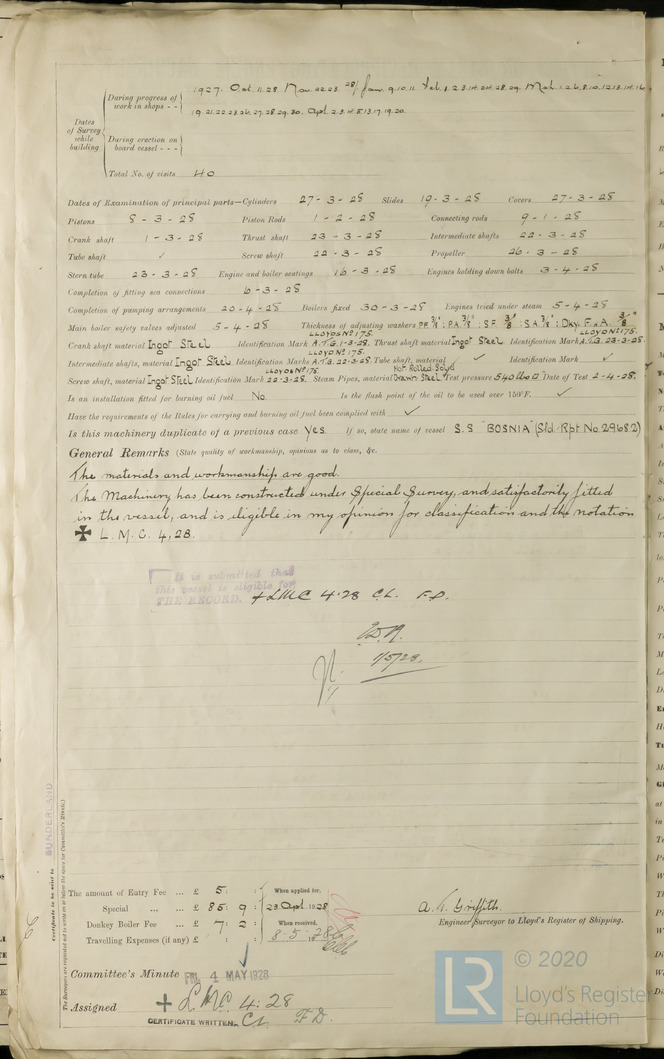 During progress of work in shops - - 1927. Oct. 11. 28. Nov. 22. 23. 28/ Jan. 9. 10. 11. Feb. 1. 2. 3. 14. 28. 29. Mch. 1. 2. 6. 8. 10. 12. 13. 14. 16
19. 21. 22. 23. 26. 27. 28. 29. 30. Apl. 2. 3. 4. 5. 13. 17. 19. 20.
Dates of Survey while building
During erection on board vessel - - -
Total No. of visits 40
Dates of Examination of principal parts—Cylinders 27-3-28 Slides 19-3-28 Covers 27-3-28
Pistons 8-3-28 Piston Rods 1-2-28 Connecting rods 9-1-28
Crank shaft 1-3-28 Thrust shaft 23-3-28 Intermediate shafts 22-3-28
Tube shaft ✓ Screw shaft 22-3-28 Propeller 26-3-28
Stern tube 23-3-28 Engine and boiler seatings 16-3-28 Engines holding down bolts 3-4-28
Completion of fitting sea connections 6-3-28
Completion of pumping arrangements 20-4-28 Boilers fixed 30-3-28 Engines tried under steam 5-4-28
Main boiler safety valves adjusted 5-4-28 Thickness of adjusting washers P.F. 3/8 : P.A. 3/8 : S.F. 3/8 : S.A. 3/8 : Dky. F & A. 3/8
Crank shaft material Ingot Steel Identification Mark LLOYDS No 175. A.T.G. 1-3-28. Thrust shaft material Ingot Steel Identification Mark LLOYD No 175. A.T.G. 23-3-28.
Intermediate shafts, material Ingot Steel Identification Marks LLOYD No 175. A.T.G. 22-3-28. Tube shaft, material ✓ Identification Mark ✓
Screw shaft, material Ingot Steel Identification Mark LLOYD No 175. 22-3-28. Steam Pipes, material Hot Rolled Solid Drawn Steel Test pressure 540 lbs □ Date of Test 2-4-28.
Is an installation fitted for burning oil fuel No. Is the flash point of the oil to be used over 150°F. ✓
Have the requirements of the Rules for carrying and burning oil fuel been complied with ✓
Is this machinery duplicate of a previous case Yes If so, state name of vessel S.S "BOSNIA" (Sld. Rpt No. 29682)
General Remarks (State quality of workmanship, opinions as to class, &c.
The materials and workmanship are good.
The Machinery has been constructed under Special Survey, and satisfactorily fitted
in the vessel, and is eligible in my opinion for classification and the notation
✠ L.M.C. 4,28.
It is submitted that
this vessel is eligible for
THE RECORD. + LMC 4.28 C.L. F.D.
1/5/28.
SUNDERLAND
Certificate to be sent to
(The Surveyors are requested not to write on or below the space for Committee's Minute.)
The amount of Entry Fee ... £ 5 : : When applied for,
Special ... ... £ 85 : 9 : 23 Apl. 1928
Donkey Boiler Fee ... £ 7 : 2 : When received,
Travelling Expenses (if any) £ : : 8-5-28
A. T. Griffith.
Engineer Surveyor to Lloyd's Register of Shipping.
Committee's Minute FRI. 4 MAY 1928
Assigned + LMC. 4:28
CERTIFICATE WRITTEN. CL. F.D.
LR
© 2020
Lloyd's Register
Foundation